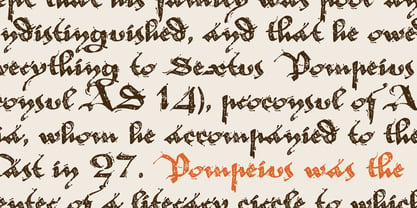 that his family was poor and
undistinguished, and that he owe
verything to Sextus Pompeius
consul AS 14), proconsul of A
ia, whom he accompanied to the
ast in 27. Pompeius was the
enter of a literary circle to which